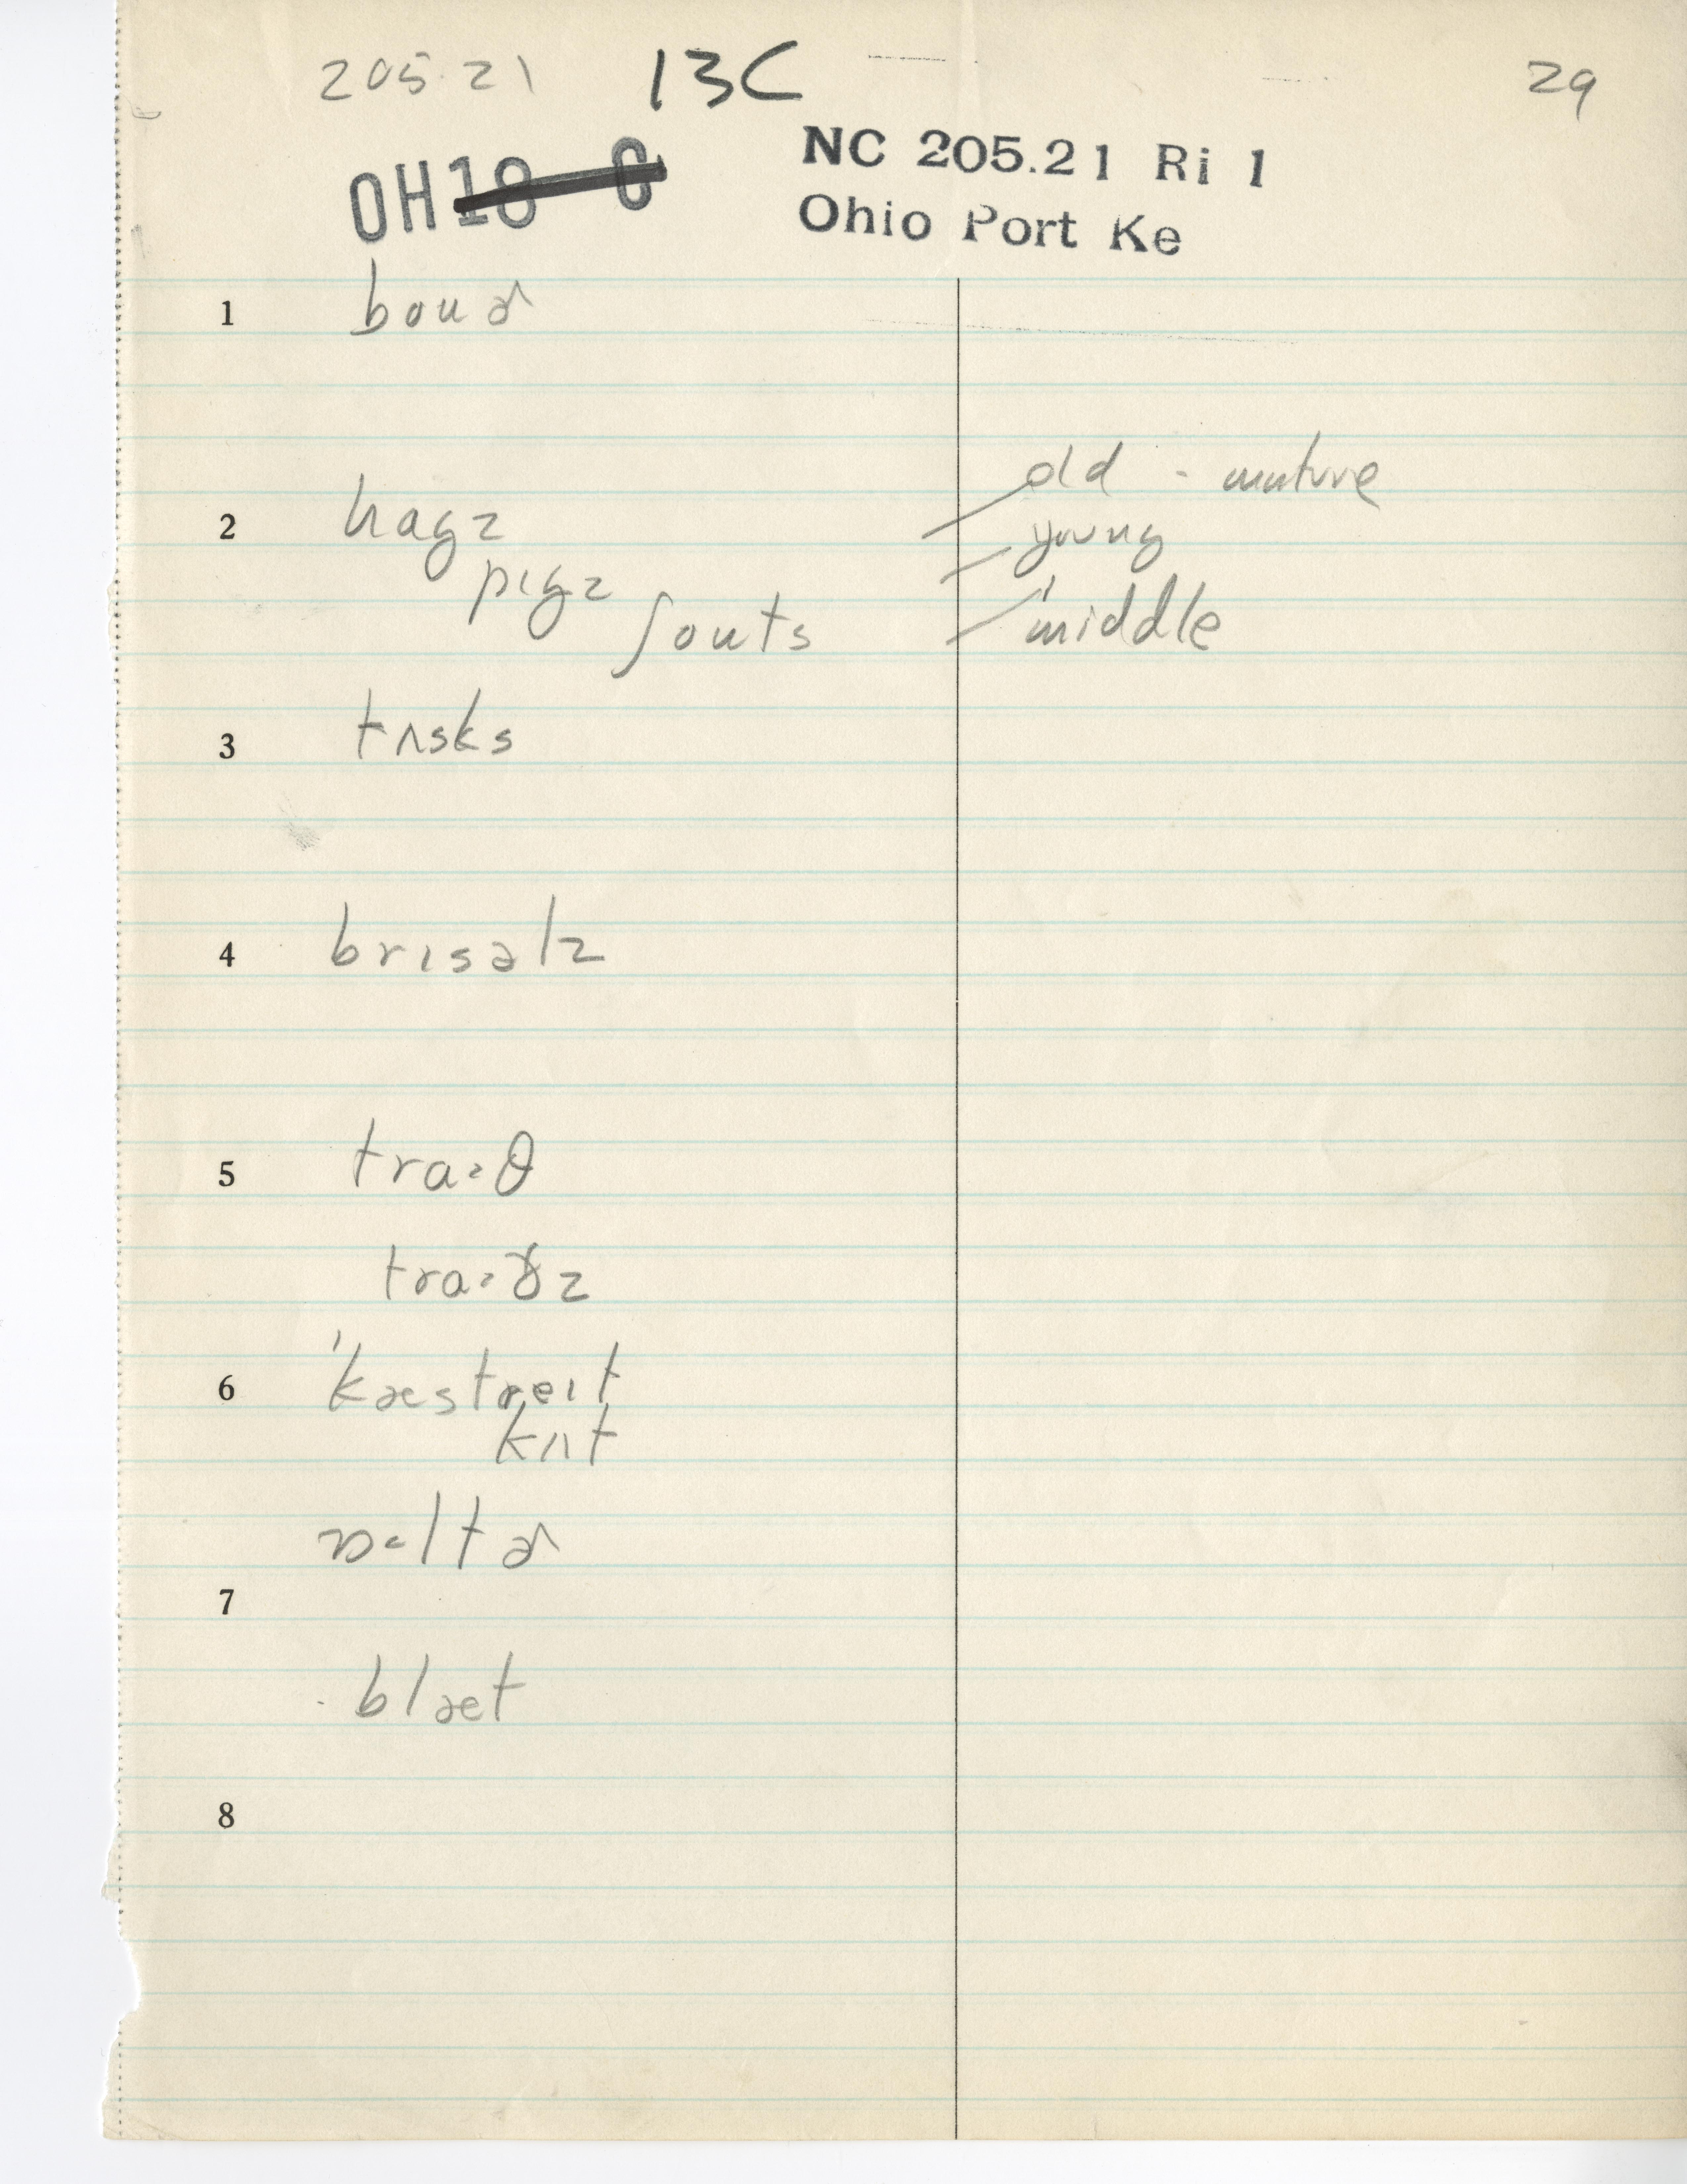 205.21 13C 29
NC 205.21 Ri 1
OH18 C
Ohio Port Ke
1 bouɚ
old - mature
2 hɑgz young
pɪgz
ʃouts middle
3 tʌsks
4 brɪsəlz
5 trɑ·θ
trɑ·ðz
6 ˈkæstreɪt
kʌt
ɒ·ltɚ
7
blæt
8